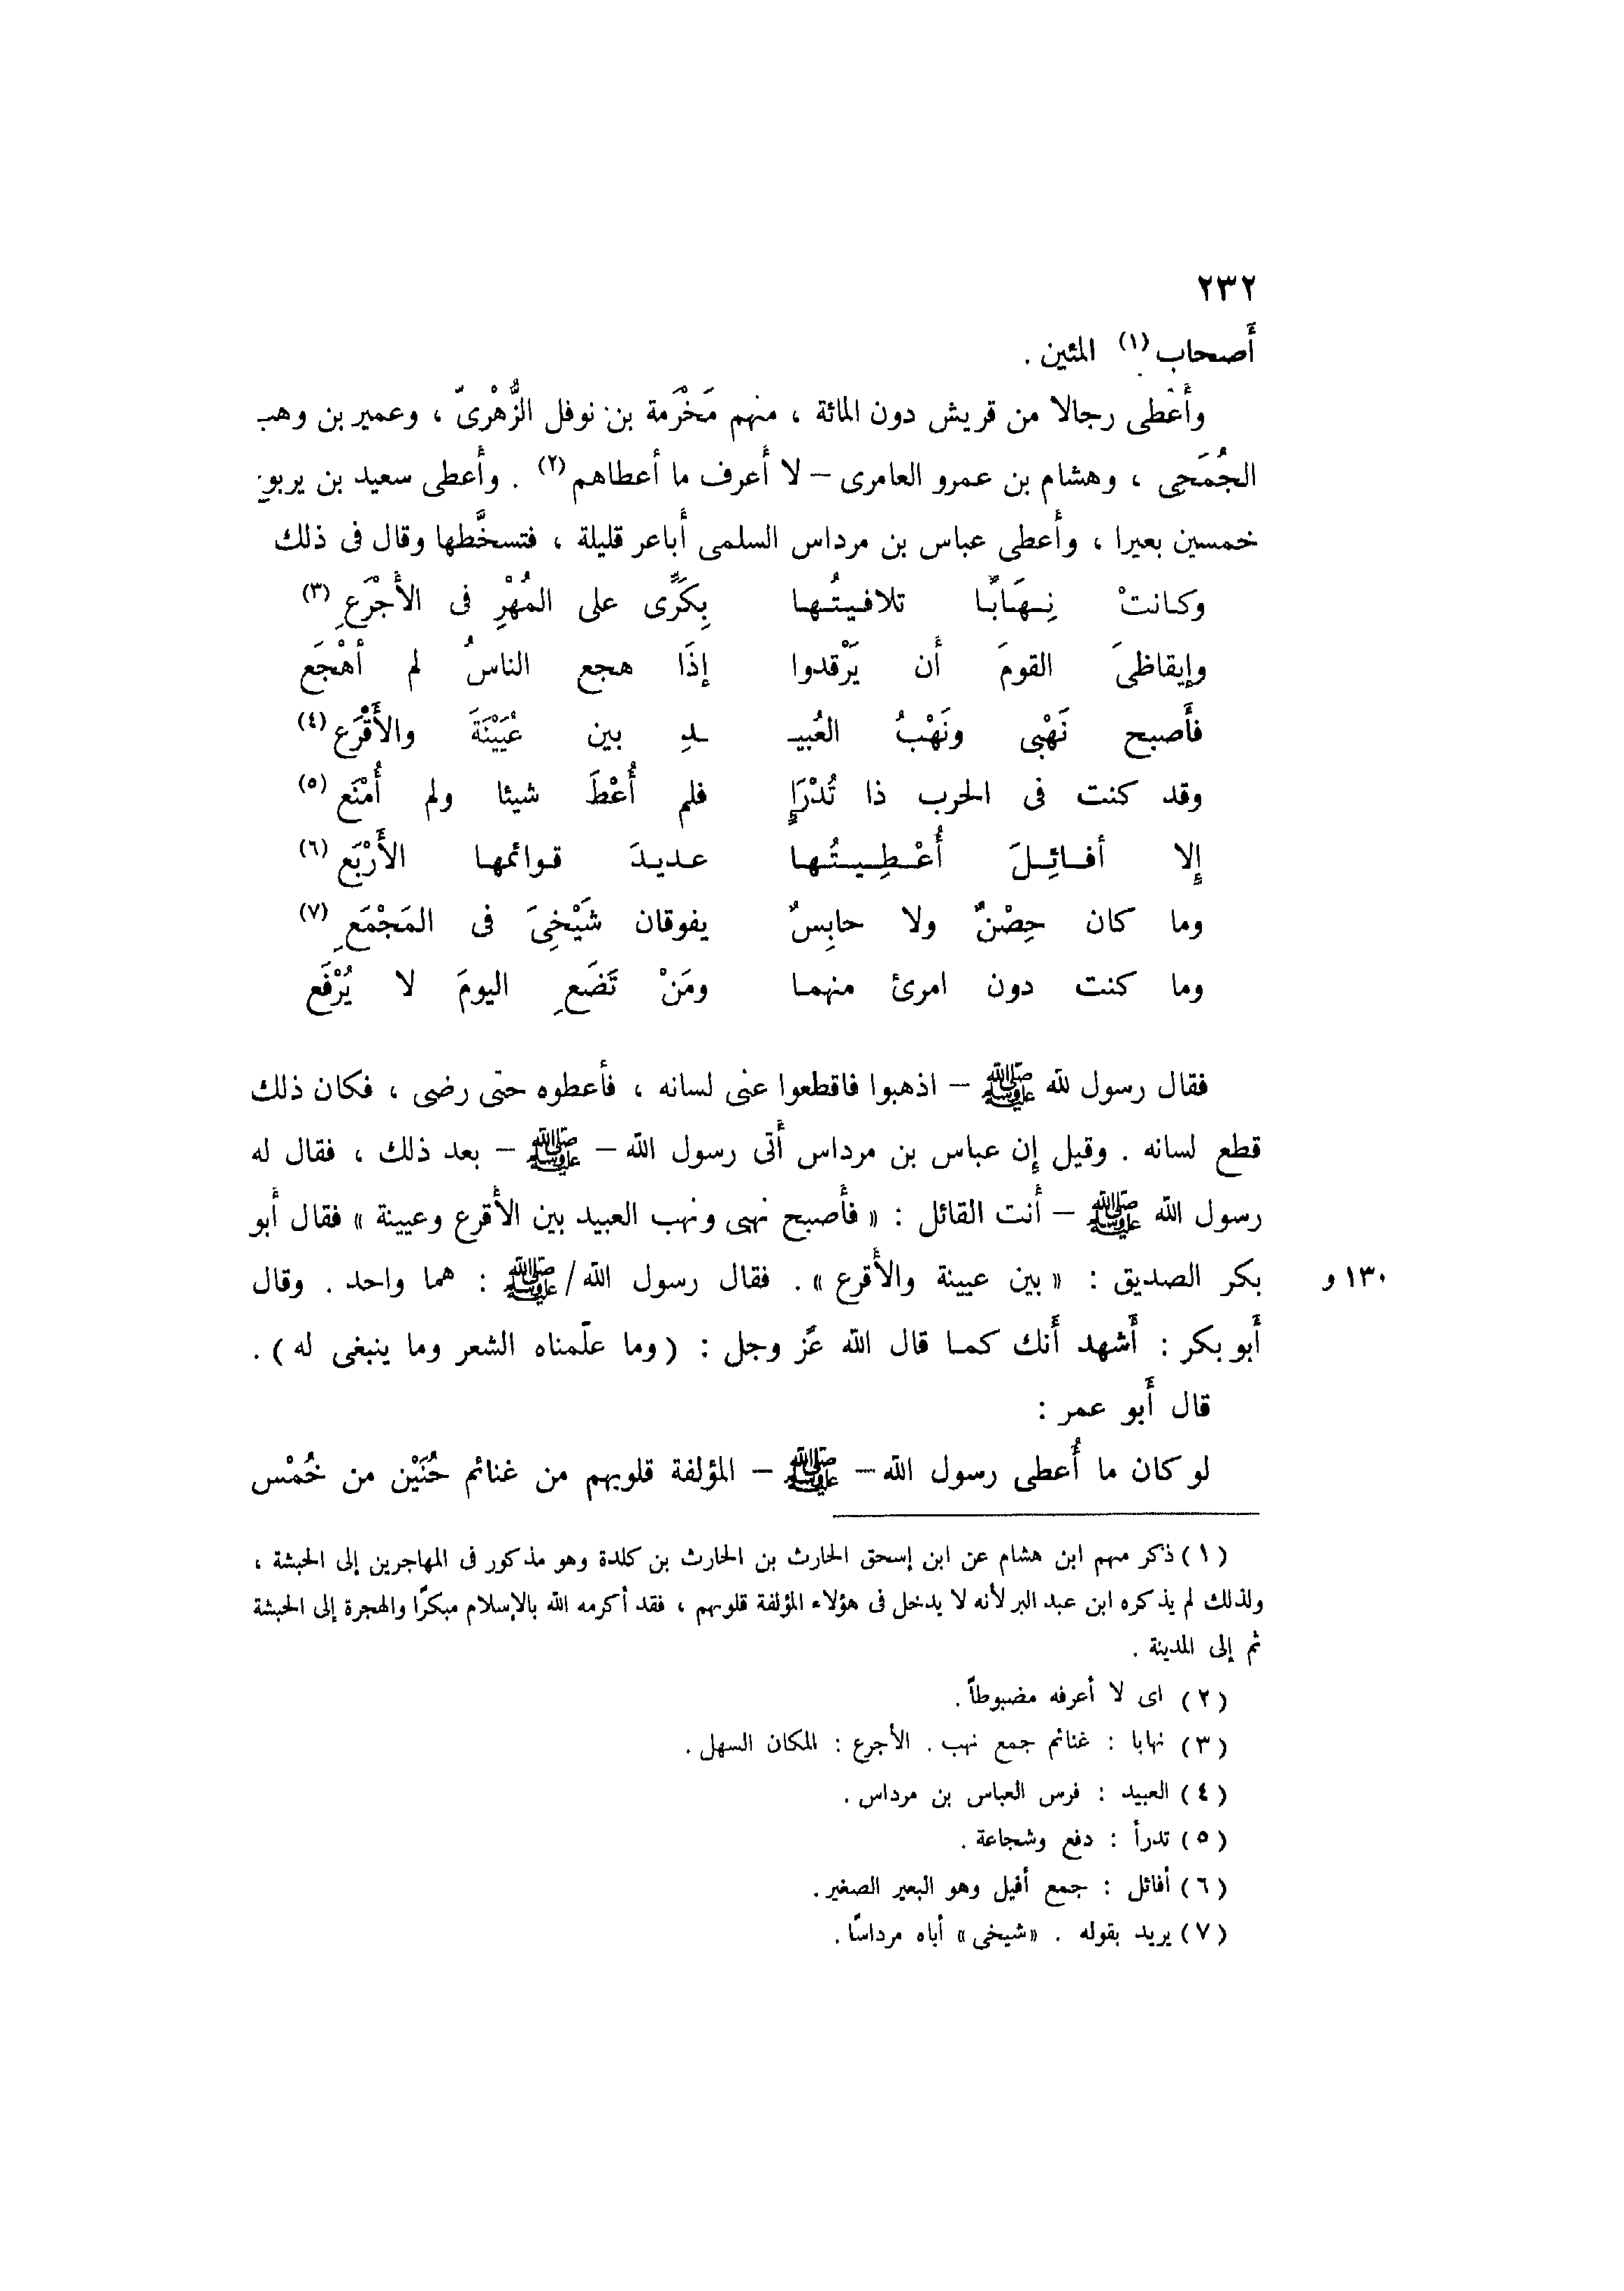 ٢٣٢
أَصحاب (١) المئين .
وأَعْطى رجالا من قريش دون المائة ، منهم مَخْرَمة بن نوفل الزُّهْرىّ ، وعمير بن وهب
الجُمَحِى ، وهشام بن عمرو العامرى – لا أَعرف ما أعطاهم (٢) . وأَعطى سعيد بن يربوع
خمسين بعيرا ، وأَعطى عباس بن مرداس السلمى أَباعر قليلة ، فتسخَّطها وقال فى ذلك
وكـانتْ نِـهَـابًـا تلافـيـتُـهـا بِكَرِّى على المُهْرِ فى الأَجْرَعِ (٣)
وإيقاظىَ القومَ أَن يَرْقدوا إذَا هجع الناسُ لم أهْجَع
فأَصبح نَهْبى ونَهْبُ العُبيـ ـدِ بين عُيَيْنَةَ والأَقْرَع (٤)
وقد كنت فى الحرب ذا تُدْرَإٍ فلم أُعْطَ شيئا ولم أُمْنَع (٥)
إِلا أفـائِـلَ أُعْـطِـيـتُـهـا عـديـدَ قـوائمهـا الأَرْبَع (٦)
وما كان حِصْنٌ ولا حابِسٌ يفوقان شَيْخِىَ فى المَجْمَعِ (٧)
وما كنت دون امرئ منهمـا ومَنْ تَضَعِ اليومَ لا يُرْفَع
فقال رسول لله ﷺ – اذهبوا فاقطعوا عنى لسانه ، فأَعطوه حتى رضى ، فكان ذلك
قطع لسانه . وقيل إِن عباس بن مرداس أَتى رسول الله – ﷺ – بعد ذلك ، فقال له
رسول الله ﷺ – أَنت القائل : « فأَصبح نهبى ونهب العبيد بين الأَقرع وعيينة » فقال أَبو
بكر الصديق : « بين عيينة والأَقرع » . فقال رسول الله/ ﷺ : هما واحد . وقال
١٣٠ و
أَبو بكر : أَشهد أَنك كمـا قال الله عَزّ وجل : ( وما علّمناه الشعر وما ينبغى له ) .
قال أَبو عمر :
لو كان ما أُعطى رسول الله – ﷺ – المؤلفة قلوبهم من غنائم حُنَيْن من خُمْس
( ١ ) ذكر منهم ابن هشام عن ابن إسحق الحارث بن الحارث بن كلدة وهو مذكور فى المهاجرين إلى الحبشة ،
ولذلك لم يذكره ابن عبد البر لأنه لا يدخل فى هؤلاء المؤلفة قلوبهم ، فقد أكرمه الله بالإسلام مبكرًا والهجرة إلى الحبشة
ثم إلى المدينة .
( ٢ ) اى لا أعرفه مضبوطاً .
( ٣ ) نهابا : غنائم جمع نهب . الأجرع : المكان السهل .
( ٤ ) العبيد : فرس العباس بن مرداس .
( ٥ ) تدرأ : دفع وشجاعة .
( ٦ ) أفائل : جمع أفيل وهو البعير الصغير .
( ٧ ) يريد بقوله . «شيخى» أباه مرداسًا .